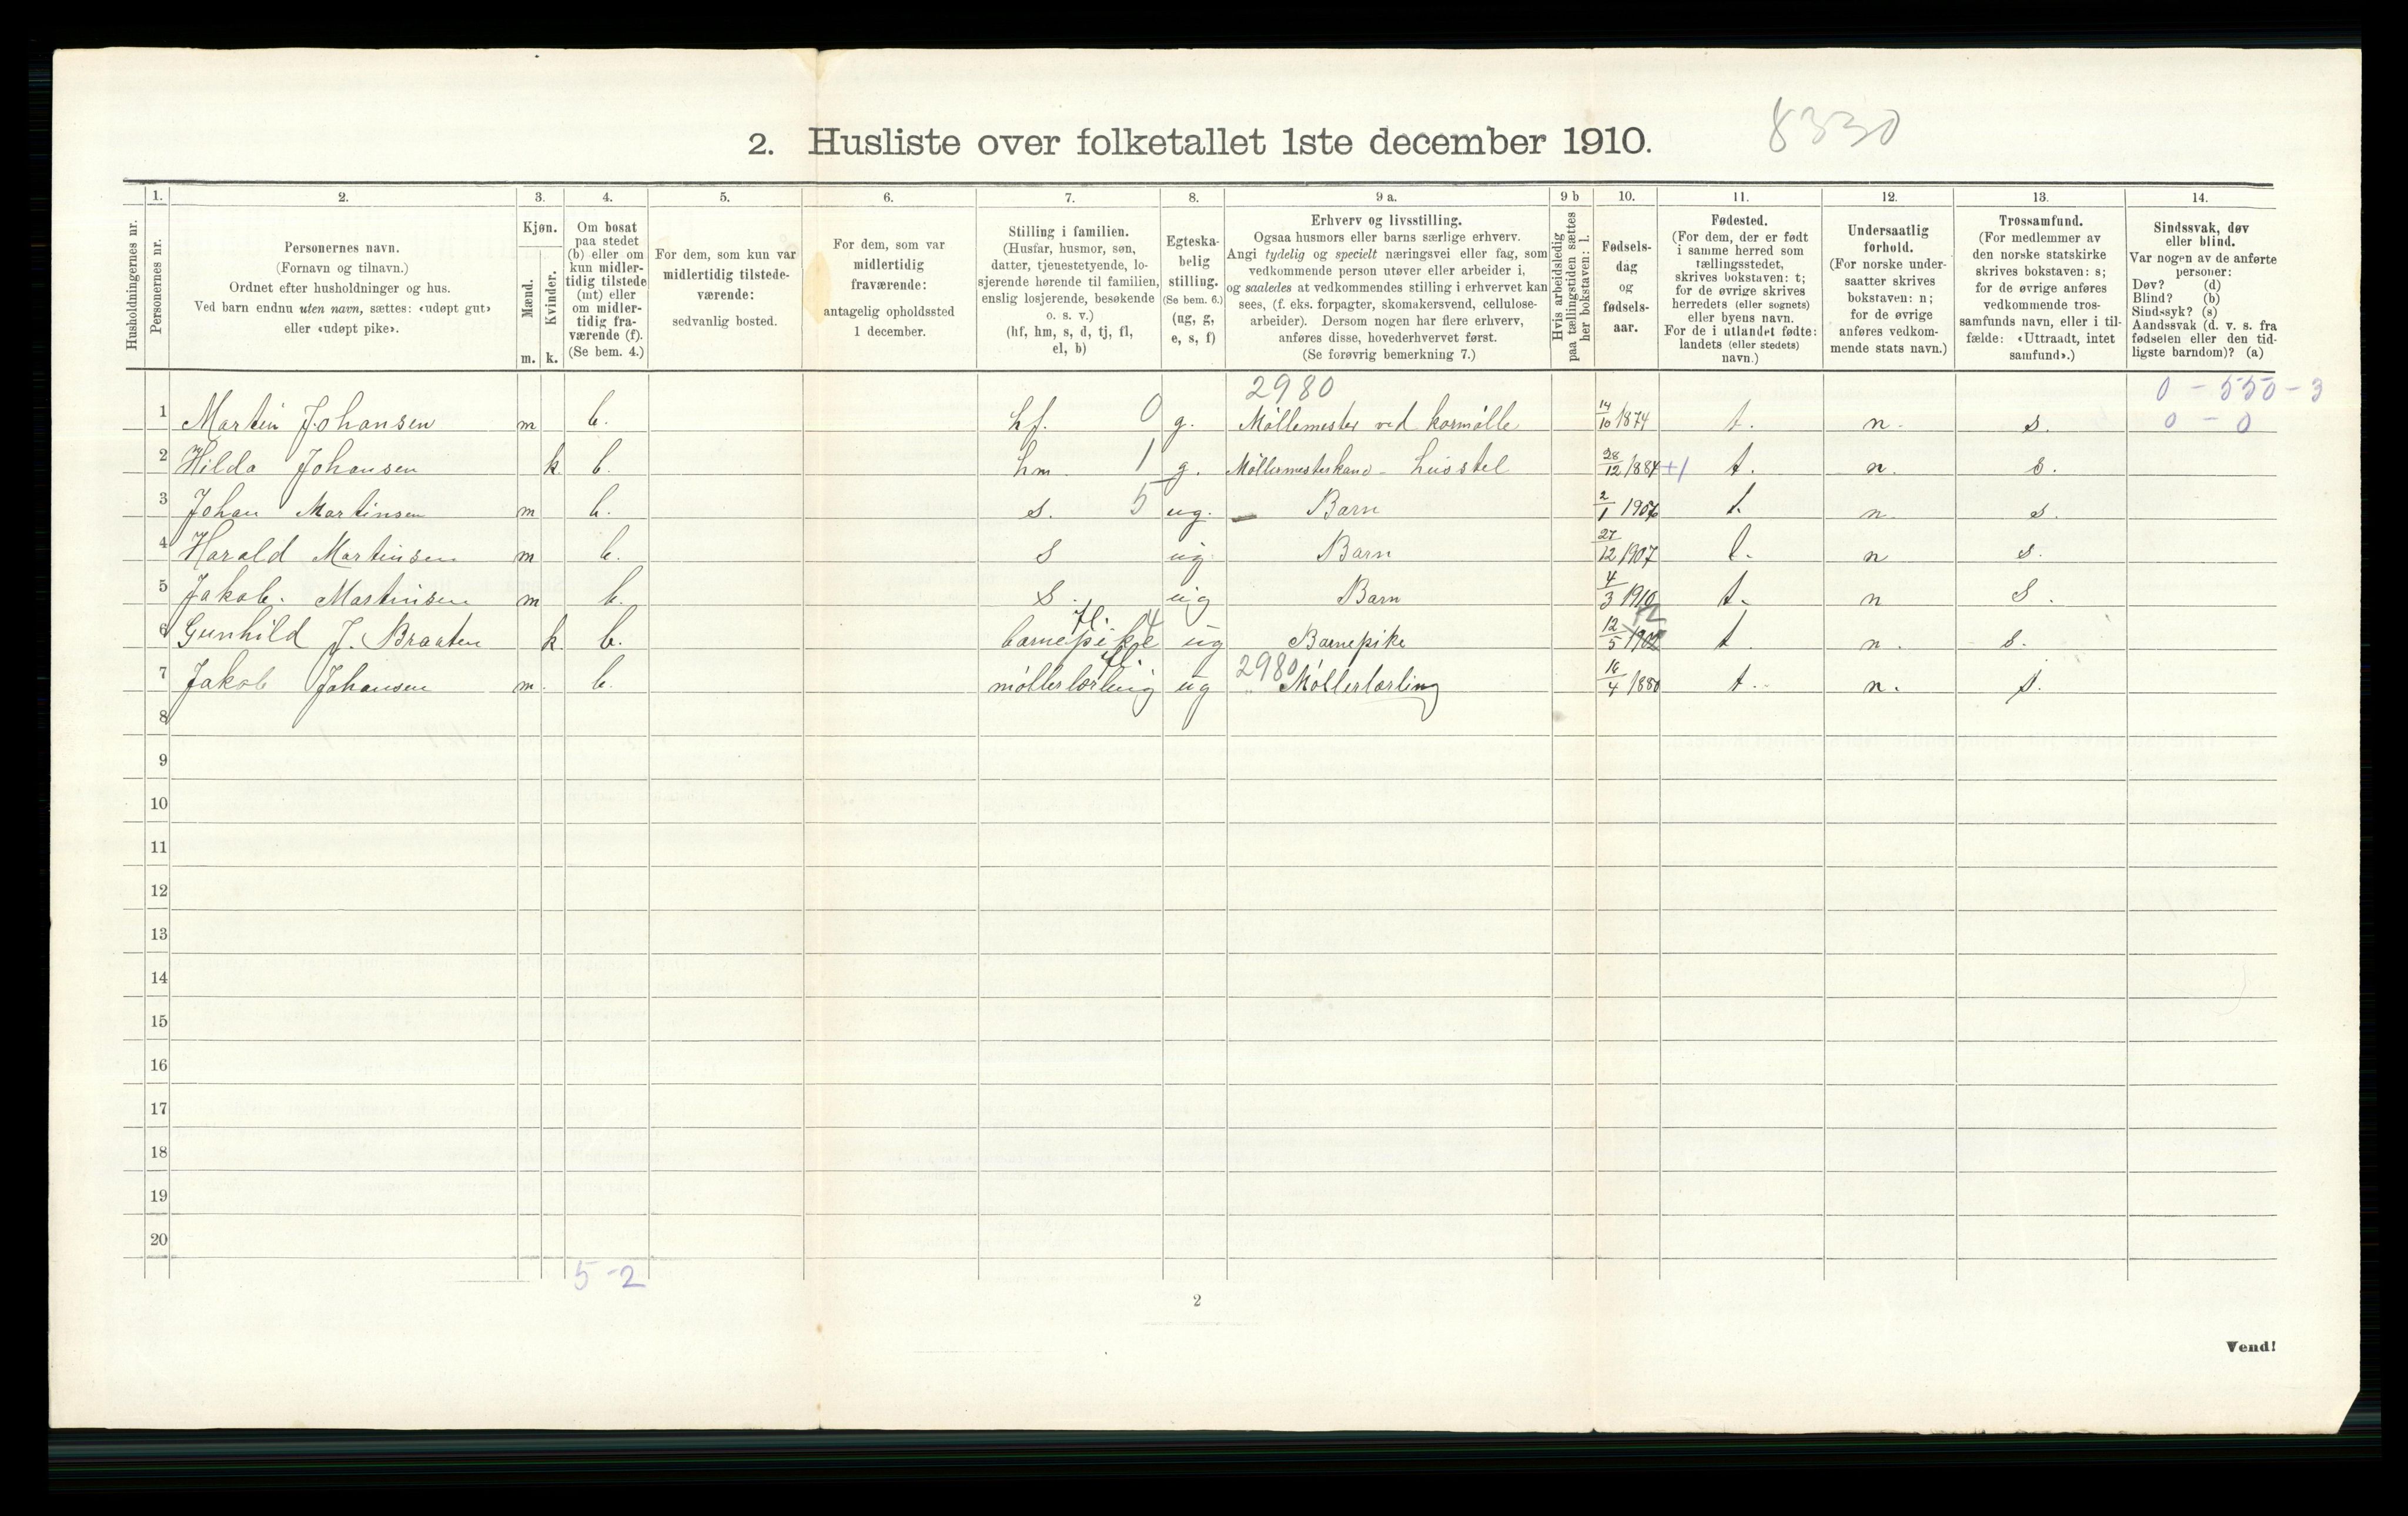 8330
2. Husliste over folketallet 1ste december 1910.
Husholdningernes nr.
1.
Personernes nr.
2.
Personernes navn.
(Fornavn og tilnavn.)
Ordnet efter husholdninger og hus.
Ved barn endnu uten navn, sættes: «udøpt gut»
eller «udøpt pike».
3.
Kjøn.
Mænd.
Kvinder.
m. k.
4.
Om bosat
paa stedet
(b) eller om
kun midler-
tidig tilstede
(mt) eller
om midler-
tidig fra-
værende (f).
(Se bem. 4.)
5.
For dem, som kun var
midlertidig tilstede-
værende:
sedvanlig bosted.
6.
For dem, som var
midlertidig
fraværende:
antagelig opholdssted
1 december.
7.
Stilling i familien.
(Husfar, husmor, søn,
datter, tjenestetyende, lo-
sjerende hørende til familien,
enslig losjerende, besøkende
o. s. v.)
(hf, hm, s, d, tj, fl,
el, b)
8.
Egteska-
belig
stilling.
(Se bem. 6.)
(ug, g,
e, s, f)
9 a.
Erhverv og livsstilling.
Ogsaa husmors eller barns særlige erhverv.
Angi tydelig og specielt næringsvei eller fag, som
vedkommende person utøver eller arbeider i,
og saaledes at vedkommendes stilling i erhvervet kan
sees, (f. eks. forpagter, skomakersvend, cellulose-
arbeider). Dersom nogen har flere erhverv,
anføres disse, hovederhvervet først.
(Se forøvrig bemerkning 7.)
9 b
Hvis arbeidsledig
paa tællingstiden sættes
her bokstaven: l.
10.
Fødsels-
dag
og
fødsels-
aar.
11.
Fødested.
(For dem, der er født
i samme herred som
tællingsstedet,
skrives bokstaven: t;
for de øvrige skrives
herredets (eller sognets)
eller byens navn.
For de i utlandet fødte:
landets (eller stedets)
navn.)
12.
Undersaatlig
forhold.
(For norske under-
saatter skrives
bokstaven: n;
for de øvrige
anføres vedkom-
mende stats navn.)
13.
Trossamfund.
(For medlemmer av
den norske statskirke
skrives bokstaven: s;
for de øvrige anføres
vedkommende tros-
samfunds navn, eller i til-
fælde: «Uttraadt, intet
samfund».)
14.
Sindssvak, døv
eller blind.
Var nogen av de anførte
personer:
Døv? (d)
Blind? (b)
Sindssyk? (s)
Aandssvak (d. v. s. fra
fødselen eller den tid-
ligste barndom)? (a)
2980 0 - 550 - 3
1 Martin Johansen m b. hf. 0 g. Møllemester ved kornmølle 14/10 1874 t. n. s. 0 - 0
2 Hilda Johansen k. b. hm 1 g. Møllermesterkone - husstel 28/12 1884 +1 t. n. s.
3 Johan Martinsen m b. s. 5 ug. Barn 2/1 1906 t. n s.
4 Harald Martinsen m b. s ug Barn 27/12 1907 t. n s.
5 Jakob. Martinsen m b. s. ug Barn 4/3 1910 t. n s.
fl. 4
6 Gunhild J. Braaten k. b. barnepike ug Barnepike 12/5 t n. s.
fl. 2980
7 Jakob Johansen m. b. møllerlærling ug Møllerlærling 16/4 1880 t. n. s.
8
9
10
11
12
13
14
15
16
17
18
19
20
5 - 2
2
Vend!